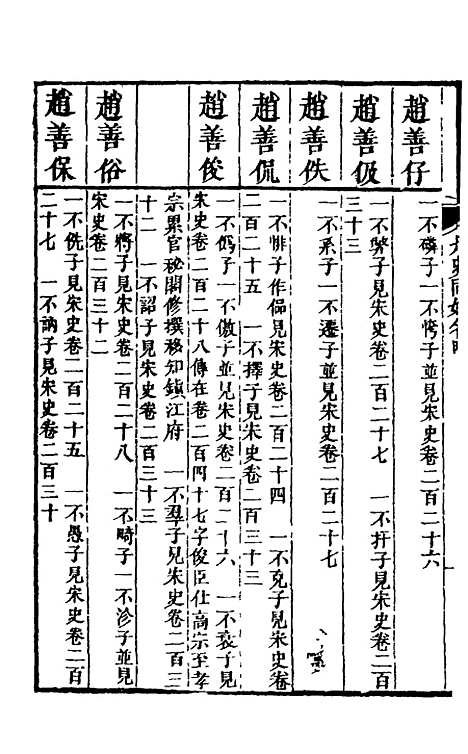 趙善仔
一不磷子一不愕子並見宋史卷二百二十六
趙善伋
一不嫳子見宋史卷二百二十七 一不扞子見宋史卷二百
三十三
趙善佚
一不系子一不遷子並見宋史卷二百二十七
趙善侃
一不腓子作偘見宋史卷二百二十四 一不克子見宋史
二百二十五 一不擇子見宋史卷二百三十三
趙善俊
一不僞子一不儆子並見宋史卷二百二十六 一不衰子見
宋史卷二百二十八傳在卷二百四十七字俊臣仕高宗至孝
宗累官秘閣修撰移知鎮江府 一不羣子見宋史卷二百三
十二 一不詔子見宋史卷二百三十三
趙善俗
一不將子見宋史卷二百二十八 一不畸子一不沴子並見
宋史卷二百三十二
趙善保
一不侁子見宋史卷二百二十五 一不愚子見宋史卷二百
二十七 一不訥子見宋史卷二百三十